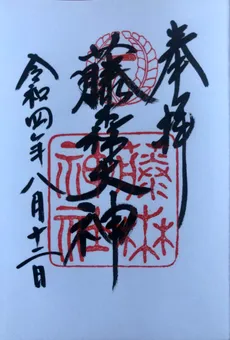 奉拝
藤森大神
令和四年八月十二日
藤森神社